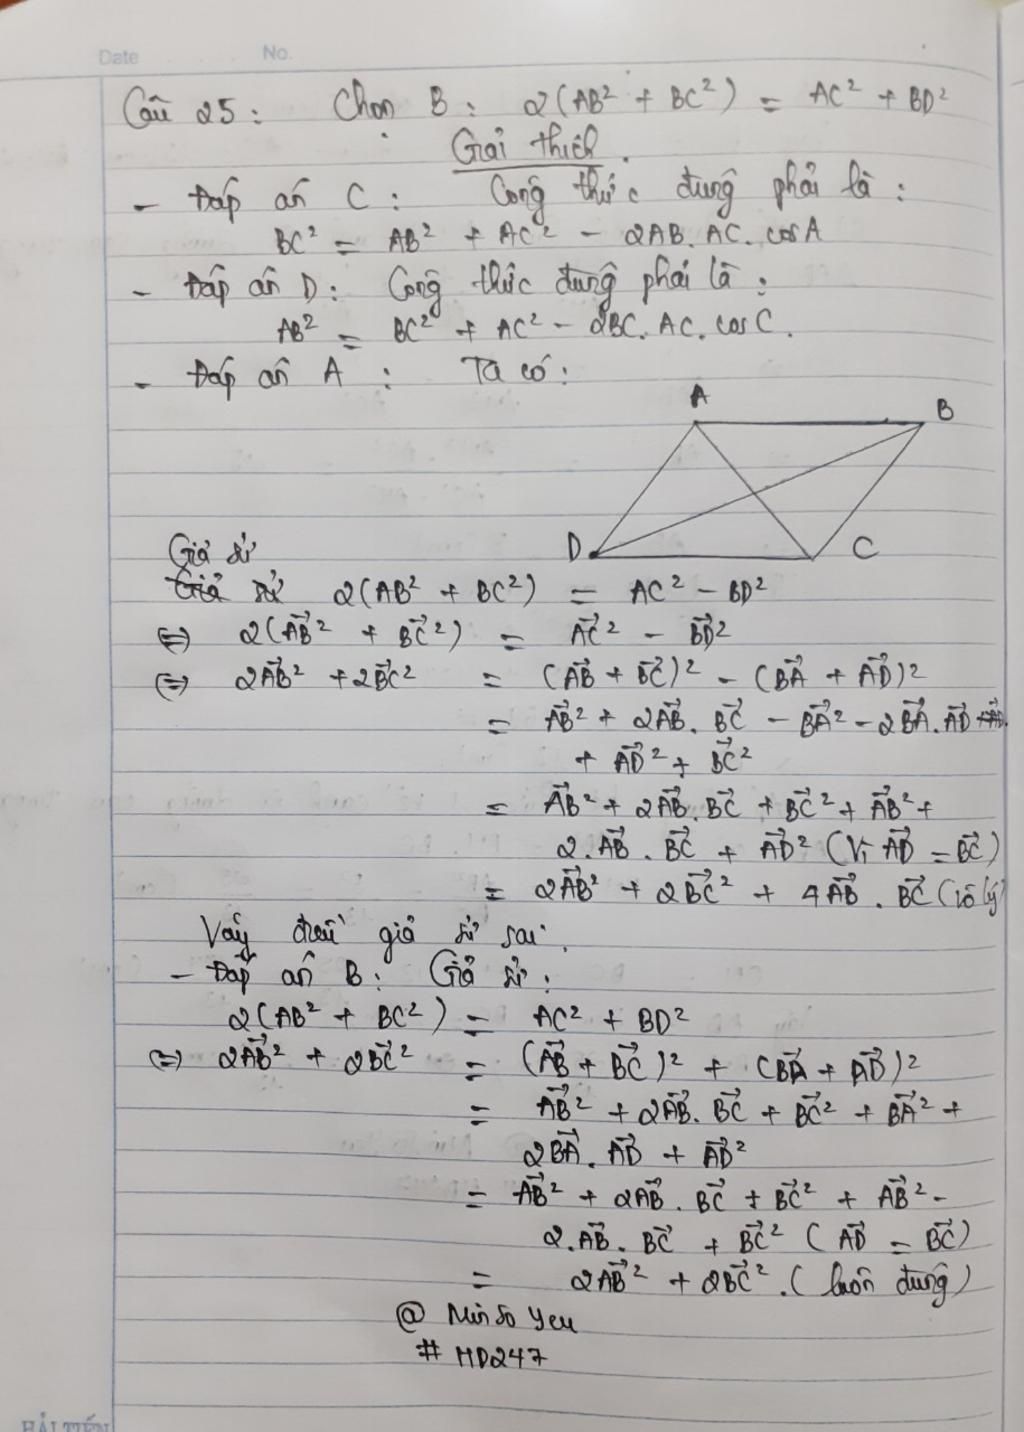 Date No.
Câu 25 : Chọn B : 2(AB² + BC²) = AC² + BD²
Giải thích.
- Đáp án C : Công thức đúng phải là :
BC² = AB² + AC² - 2AB. AC. cosA
- Đáp án D : Công thức đúng phải là :
AB² = BC² + AC² - 2BC. AC. cosC.
- Đáp án A : Ta có :
A B
D C
Giả sử
Giả sử 2(AB² + BC²) = AC² - BD²
⇔ 2(A⃗B² + B⃗C²) = A⃗C² - B⃗D²
⇔ 2A⃗B² + 2B⃗C² = (A⃗B + B⃗C)² - (B⃗A + A⃗D)²
= A⃗B² + 2A⃗B. B⃗C - B⃗A² - 2B⃗A. A⃗D
+ A⃗D² + B⃗C²
= A⃗B² + 2A⃗B. B⃗C + B⃗C² + A⃗B² +
2. A⃗B . B⃗C + A⃗D² (Vì A⃗D = B⃗C)
= 2A⃗B² + 2B⃗C² + 4A⃗B . B⃗C (Vô lý)
Vậy điều giả sử sai.
- Đáp án B : Giả sử :
2(AB² + BC²) = AC² + BD²
⇔ 2A⃗B² + 2B⃗C² = (A⃗B + B⃗C)² + (B⃗A + A⃗D)²
= A⃗B² + 2A⃗B. B⃗C + B⃗C² + B⃗A² +
2B⃗A. A⃗D + A⃗D²
= A⃗B² + 2A⃗B . B⃗C + B⃗C² + A⃗B² -
2. A⃗B. B⃗C + B⃗C² ( A⃗D = B⃗C)
= 2A⃗B² + 2B⃗C². (luôn đúng)
@ Min So Yeu
# HD247
HẢI TIẾN